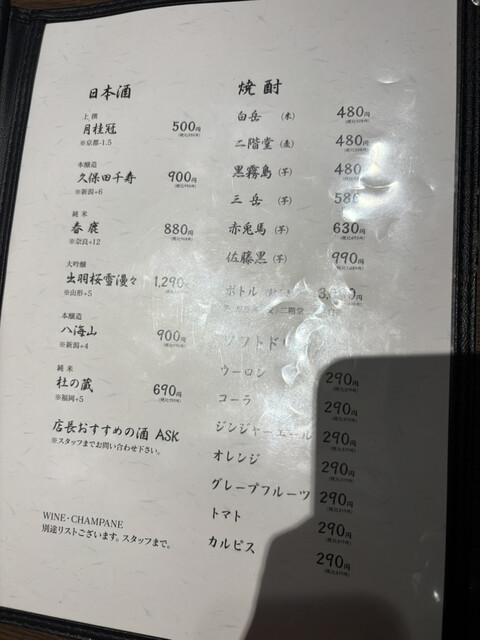 日本酒
上撰
月桂冠 500円
※京都-1.5
本醸造
久保田千寿 900円
※新潟+6
純米
春鹿 880円
※奈良+12
大吟醸
出羽桜雪漫々 1,290円
※山形+5
本醸造
八海山 900円
※新潟+4
純米
杜の蔵 690円
※福岡+5
店長おすすめの酒 ASK
※スタッフまでお問い合わせ下さい。
WINE・CHAMPANE
別途リストございます。スタッフまで。
焼酎
白岳 (米) 480円
二階堂 (麦) 480円
黒霧島 (芋) 480
三岳 (芋) 580
赤兎馬 (芋) 630円
佐藤黒 (芋) 990円
ボトル
二階堂
ソフトド
ウーロン 290円
コーラ 290円
ジンジャーエール 290円
オレンジ 290円
グレープフルーツ 290円
トマト 290円
カルピス 290円